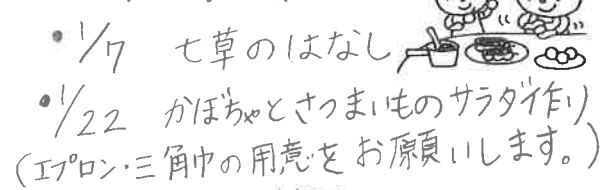 • 1/7 七草のはなし
• 1/22 かぼちゃとさつまいものサラダ作り
(エプロン・三角巾の用意をお願いします。)